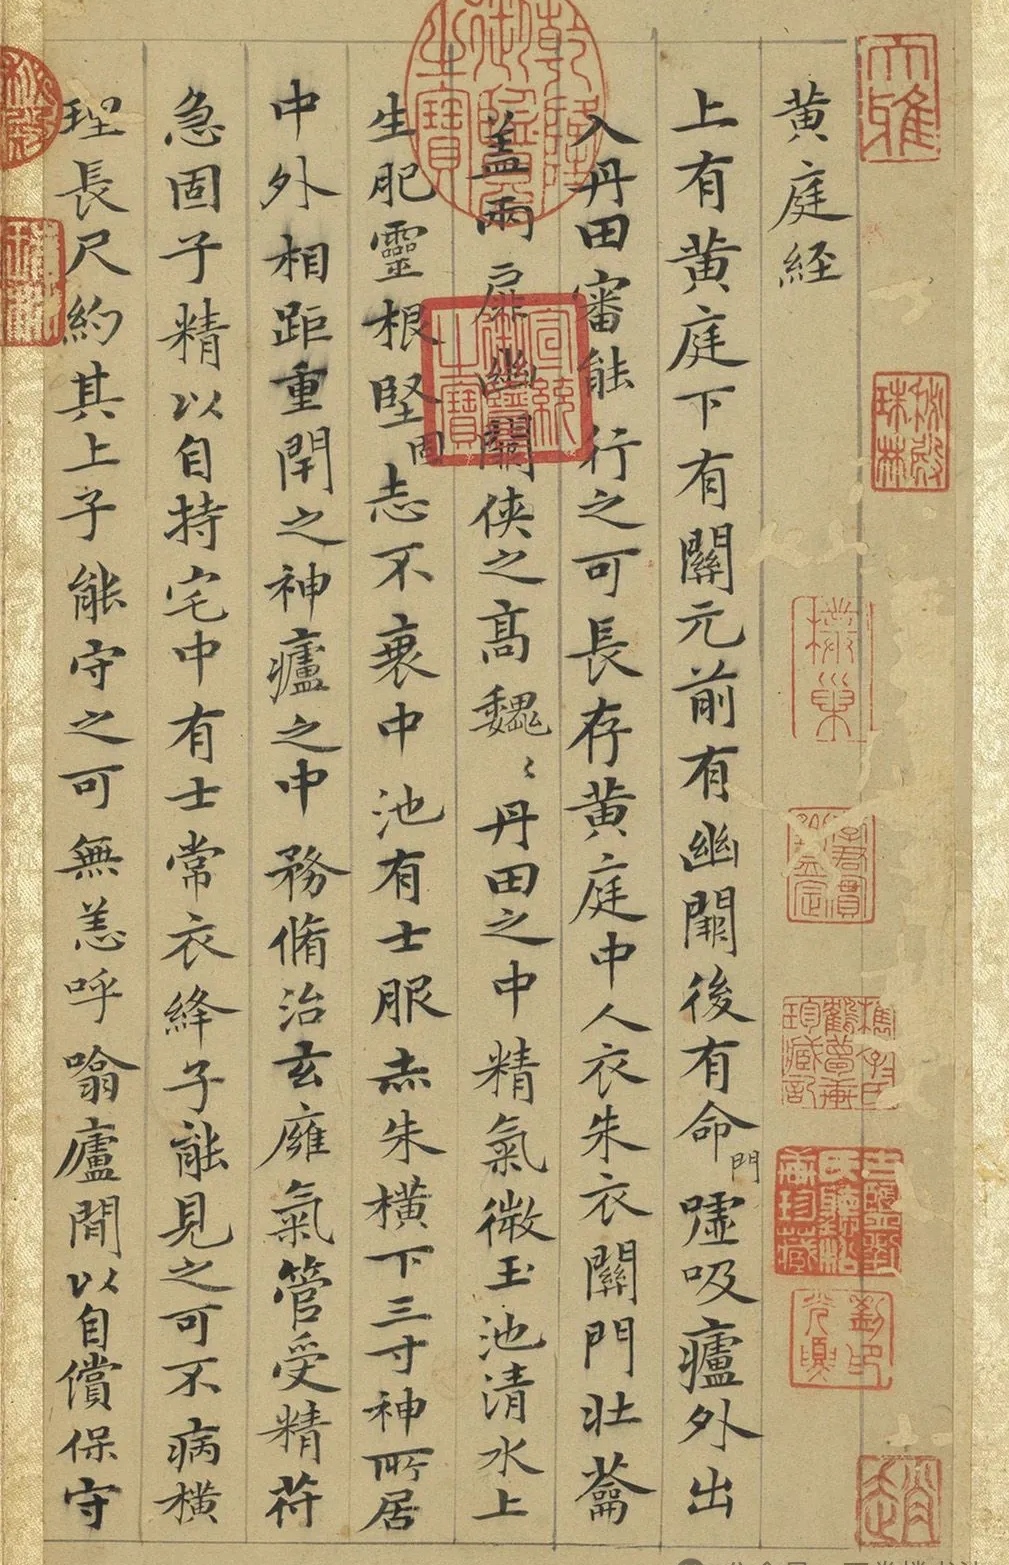 黄庭経
上有黄庭下有關元前有幽闕後有命門噓吸廬外出
入丹田審能行之可長存黄庭中人衣朱衣關門壯蘥
盖兩扉幽闕俠之高魏〻丹田之中精氣微玉池清水上
生肥靈根堅固志不衰中池有士服赤朱橫下三寸神所居
中外相距重閇之神廬之中務脩治玄廱氣管受精苻
急固子精以自持宅中有士常衣絳子能見之可不病橫
理長尺約其上子能守之可無恙呼噏廬閒以自償保守
乾隆御覽之寶
宣統御覽之寶
大雅